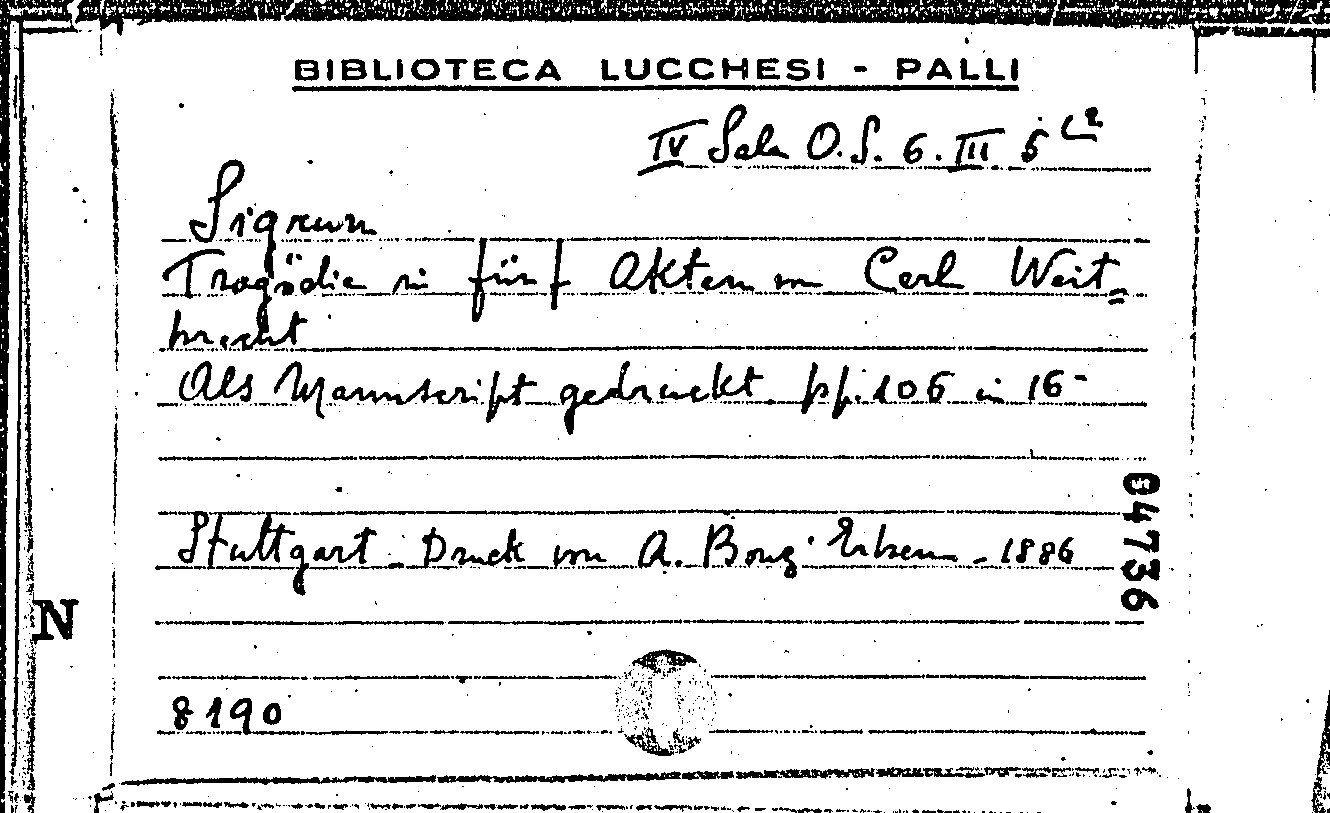 BIBLIOTECA LUCCHESI - PALLI
IV Sala O.S. 6. III 5
Sigrun
Tragödie in fünf Akten von Carl Weit=
brecht
Als Manuscript gedruckt. pp. 106 in 16-
04736
Stuttgart - Druck von A. Bonz' Erben - 1886
N
8190